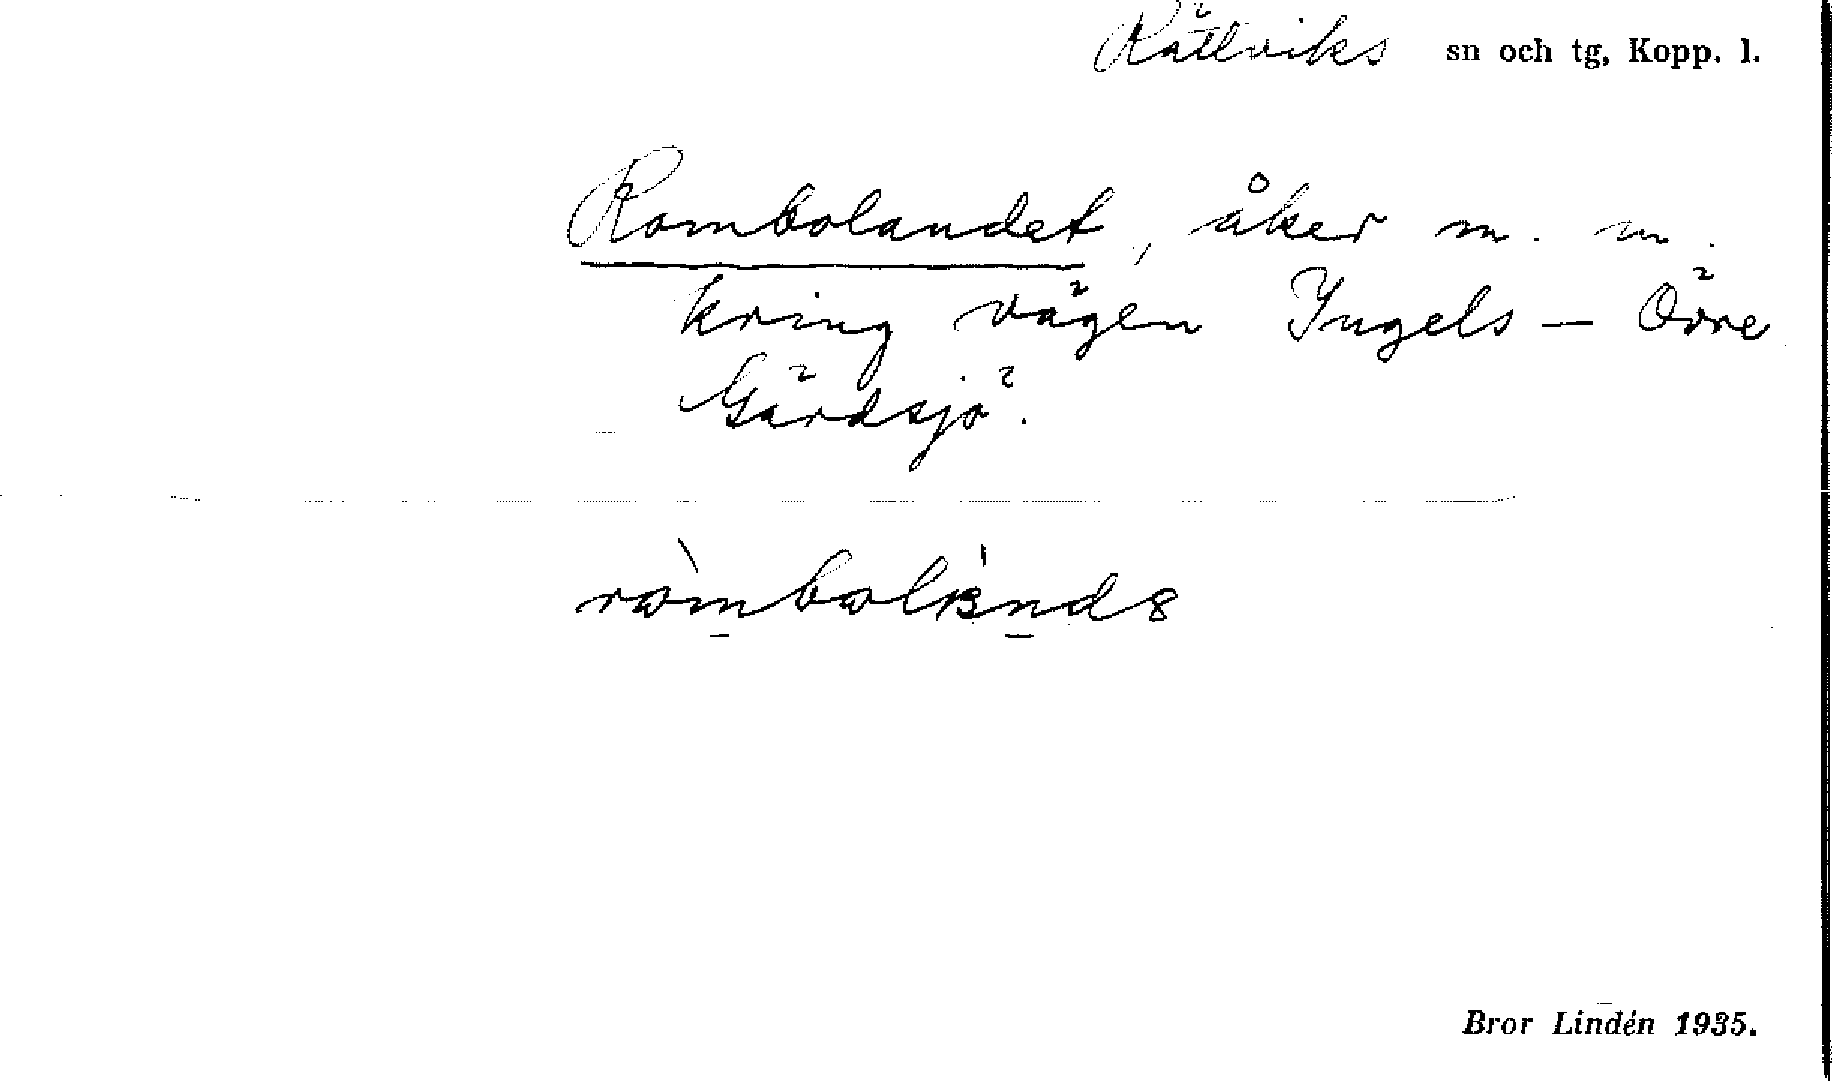 Rättviks sn och tg, Kopp. l.
Rombolandet, åker m. m.
kring vägen Ingels — Övre
Gärdsjö.
Bror Lindén 1935.